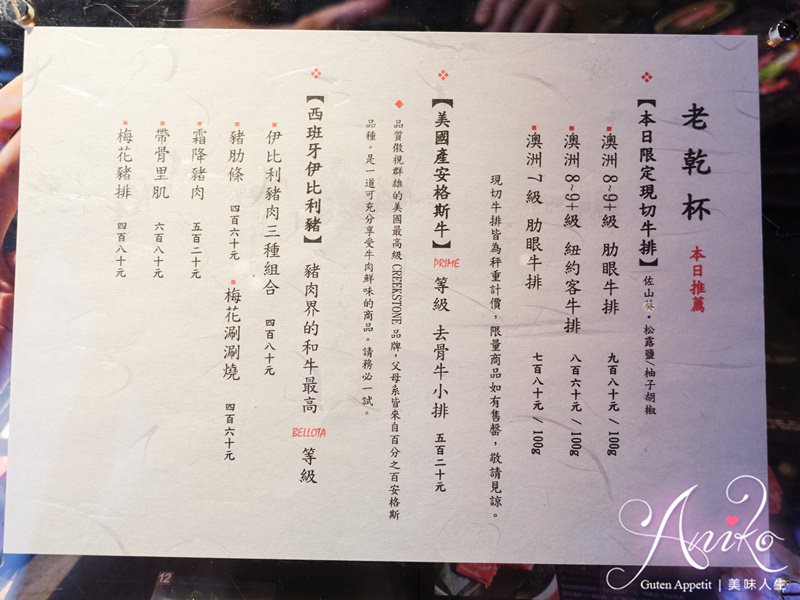 老乾杯 本日推薦
【本日限定現切牛排】佐山葵・松露鹽/柚子胡椒
澳洲 8~9+級 肋眼牛排 九百八十元 / 100g
澳洲 8~9+級 紐約客牛排 八百六十元 / 100g
澳洲 7級 肋眼牛排 七百八十元 / 100g
現切牛排皆為秤重計價，限量商品如有售罄，敬請見諒。
【美國產安格斯牛】PRIME 等級 去骨牛小排 五百二十元
品質傲視群雄的美國最高級 CREEKSTONE 品牌，父母系皆來自百分之百安格斯
品種。是一道可充分享受牛肉鮮味的商品。請務必一試。
【西班牙伊比利豬】豬肉界的和牛最高 BELLOTA 等級
伊比利豬肉三種組合 四百八十元
豬肋條 四百六十元 梅花涮涮燒 四百六十元
霜降豬肉 五百二十元
帶骨里肌 六百八十元
梅花豬排 四百八十元
12
Aniko
Guten Appetit | 美味人生